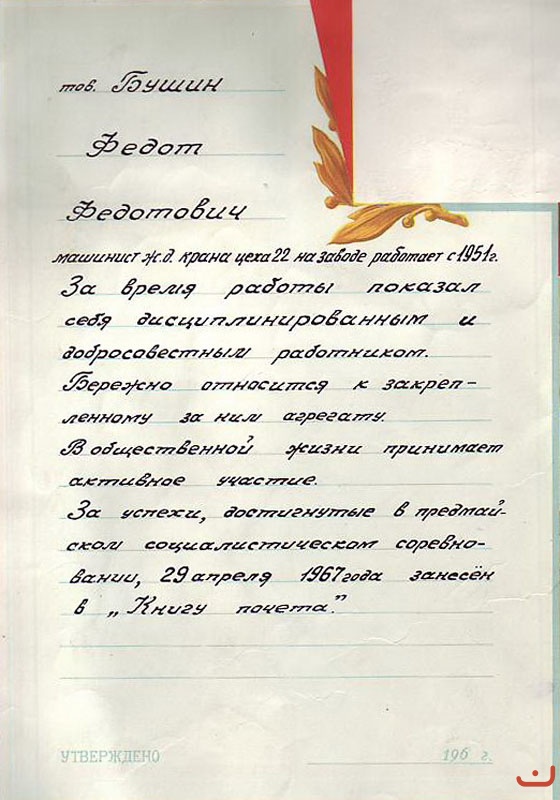 тов. Бушин
Федот
Федотович
машинист ж.д. крана цеха 22 на заводе работает с 1951г.
За время работы показал
себя дисциплинированным и
добросовестным работником.
Бережно относится к закреп-
ленному за ним агрегату.
В общественной жизни принимает
активное участие.
За успехи, достигнутые в предмай-
ском социалистическом соревно-
вании, 29 апреля 1967 года занесён
в „Книгу почета.”
УТВЕРЖДЕНО 196 г.